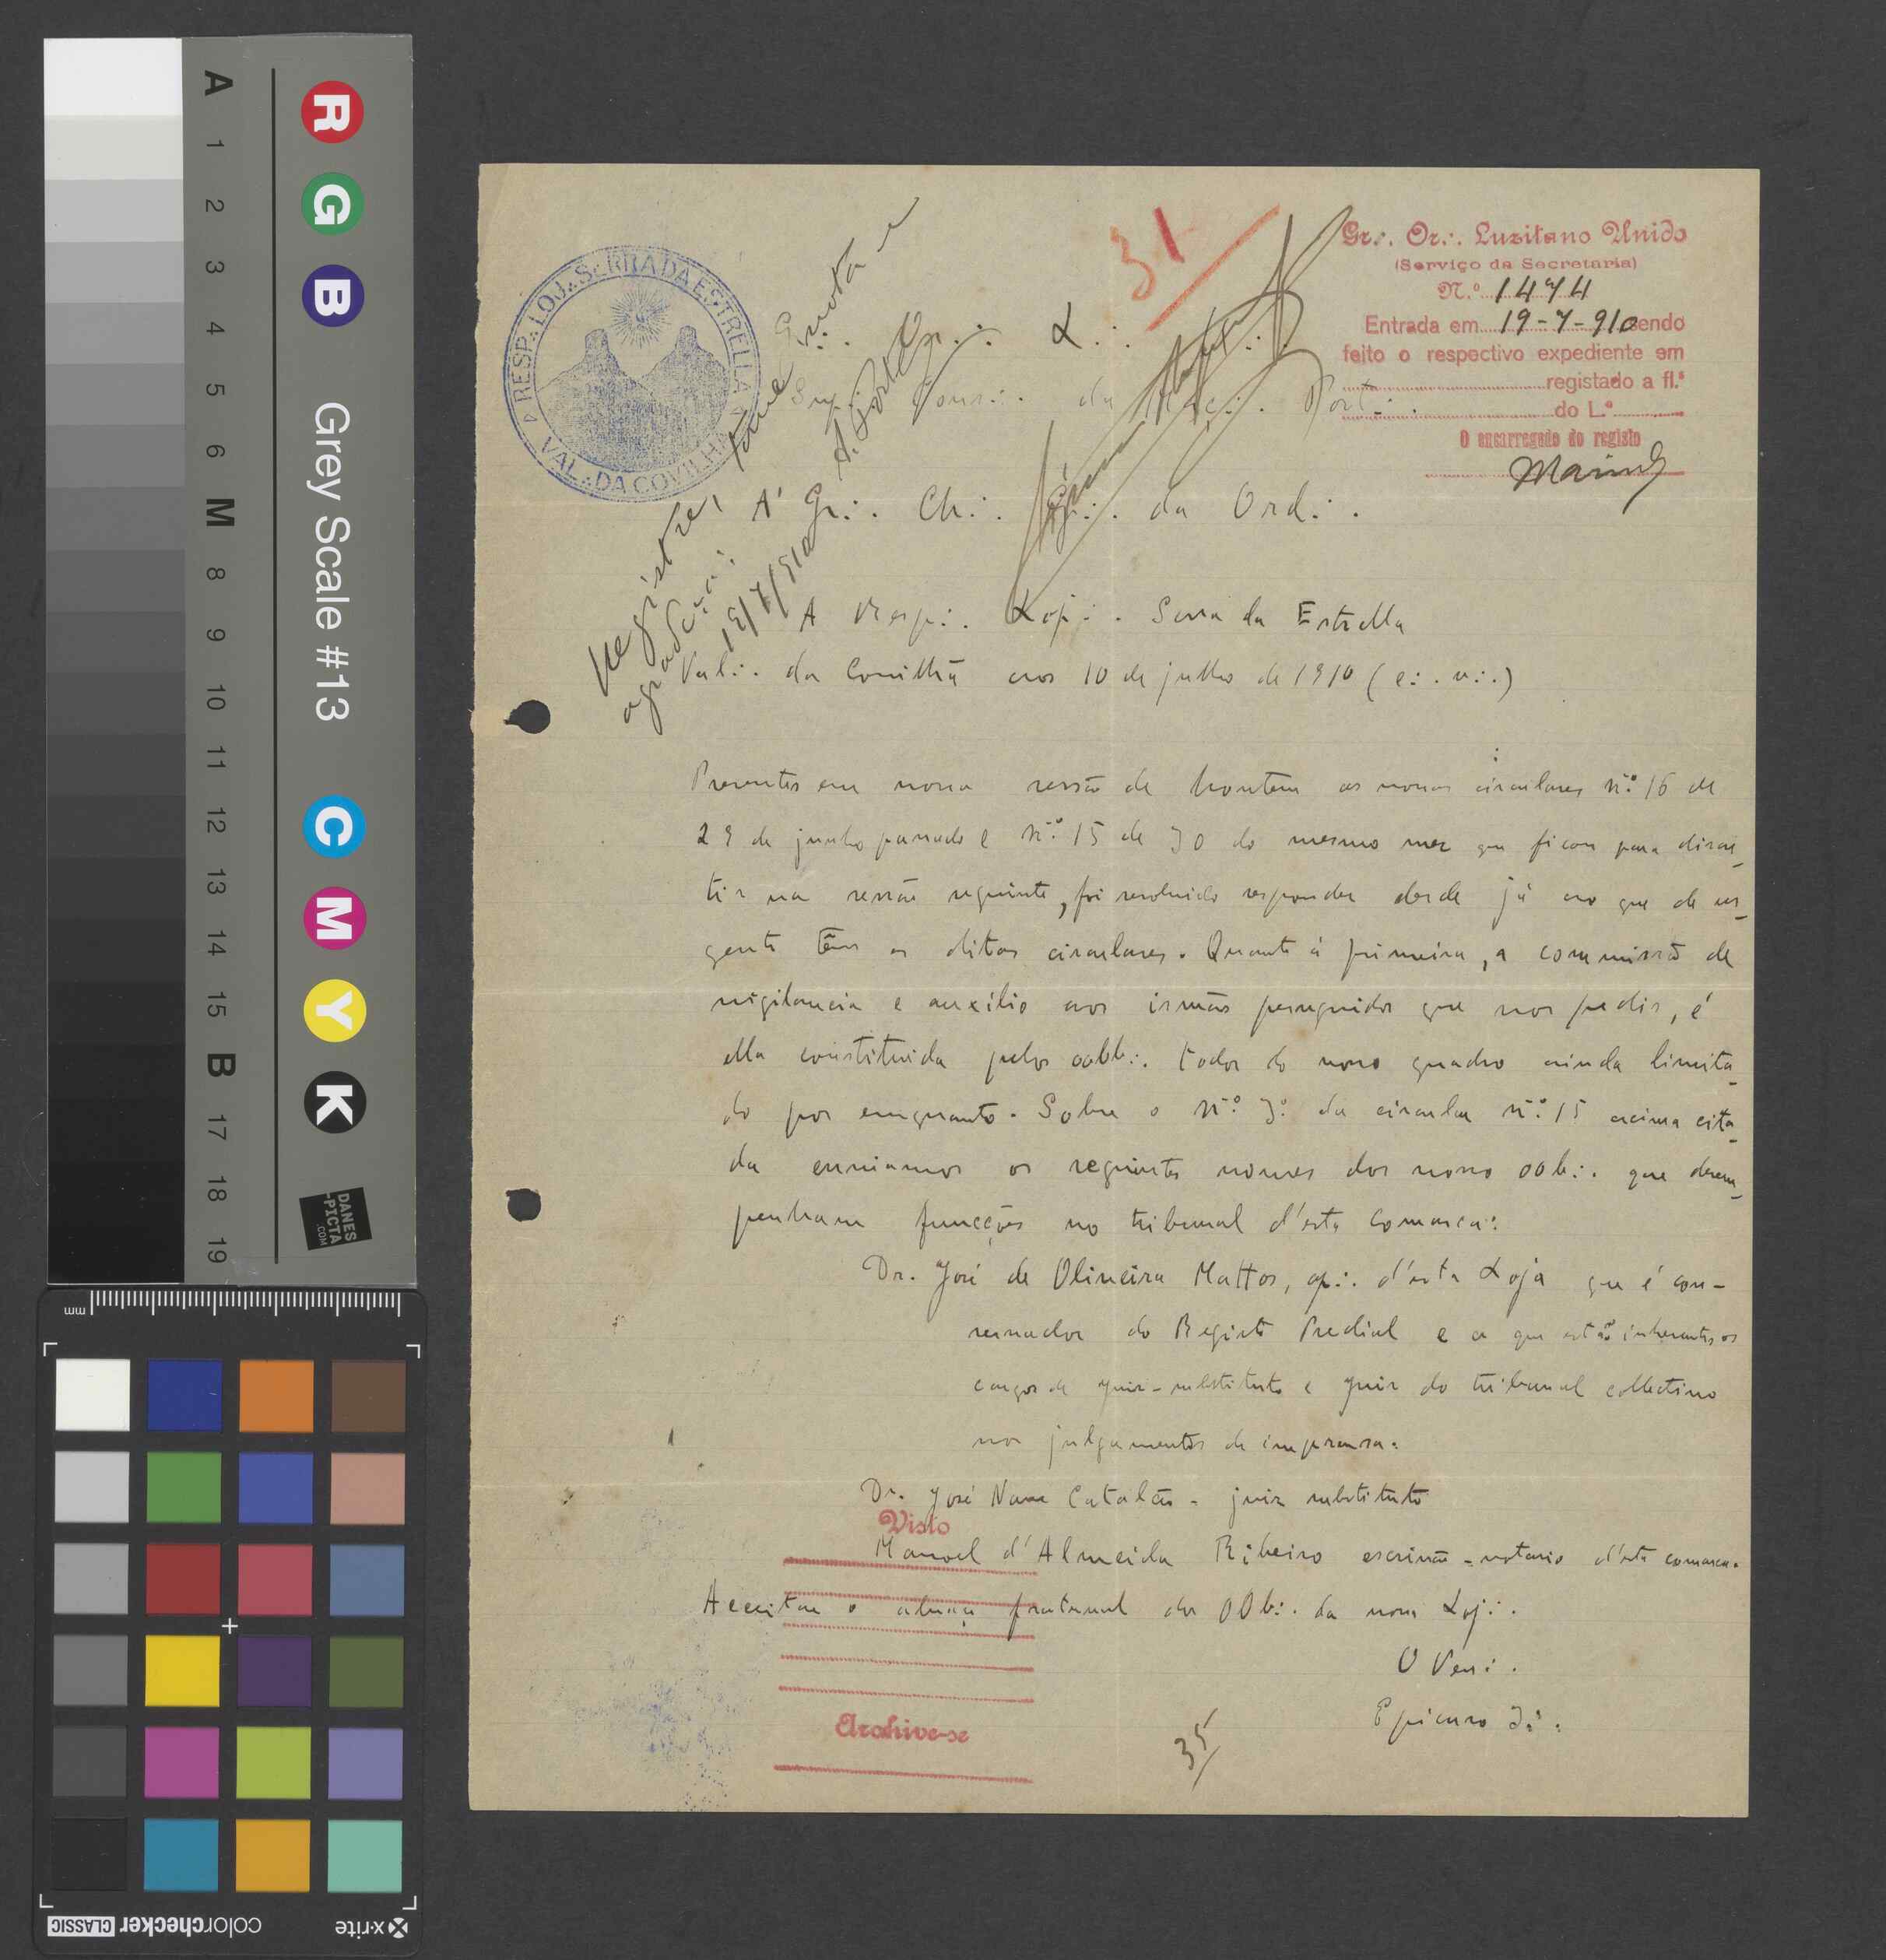 A RESP∴ LOJ∴ SERRA DA ESTRELLA
VAL∴ DA COVILHÃ
31
Gr∴ Or∴ Luzitano Unido
(Serviço da Secretaria)
N.º 1474
Entrada em 19-7-910 sendo
feito o respectivo expediente em
registado a fl.ª
do L.º
O encarregado do registo
Registre, tome nota e
agradeça∴
18/7/910
G∴ Or∴ L∴
Sup∴ Cons∴ da Maç∴ Port∴
A' Gr∴ Ch∴ G∴ da Ord∴
A Resp∴ Loj∴ Serra da Estrella
Val∴ da Covilhã aos 10 de julho de 1910 (e∴ v∴)
Presentes em nossa sessão de hontem as vossas circulares n.º 16 de
29 de junho passado e n.º 15 de 30 do mesmo mez que ficou para discu-
tir na sessão seguinte, foi resolvido responder desde já ao que de ur-
gente têm as ditas circulares. Quanto á primeira, a commissão de
vigilancia e auxilio aos irmãos perseguidos que nos pedis, é
ella constituida pelos oobb∴ todos do nosso quadro ainda limita-
do por emquanto. Sobre o n.º 3.º da circular n.º 15 acima cita-
da enviamos os seguintes nomes dos nosso oob∴ que desem-
penham funcções no tribunal d'esta comarca:
Dr. José de Oliveira Mattos, ap∴ d'esta Loja que é con-
servador do Registo Predial e a que estão inherentes os
cargos de juiz-substituto e juiz do tribunal collectivo
nos julgamentos de imprensa.
Dr. José Nave Catalão - juiz substituto
Manoel d'Almeida Ribeiro escrivão-notario d'esta comarca.
Acceitae o abraço fraternal dos OOb∴ da nossa Loj∴
O Ven∴
Epicuro 3∴
Visto
Archive-se
35
A
1
2
3
4
5
6
M
8
9
10
11
12
13
14
15
B
17
18
19
R G B
Grey Scale #13
C M Y K
DANES
-PICTA
.COM
mm
x-rite
colorchecker CLASSIC